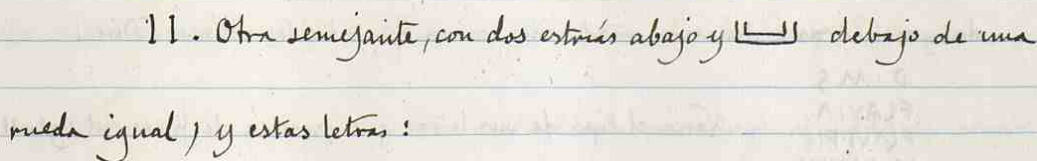 11. Otra semejante, con dos estrías abajo y debajo de una
rueda igual, y estas letras: